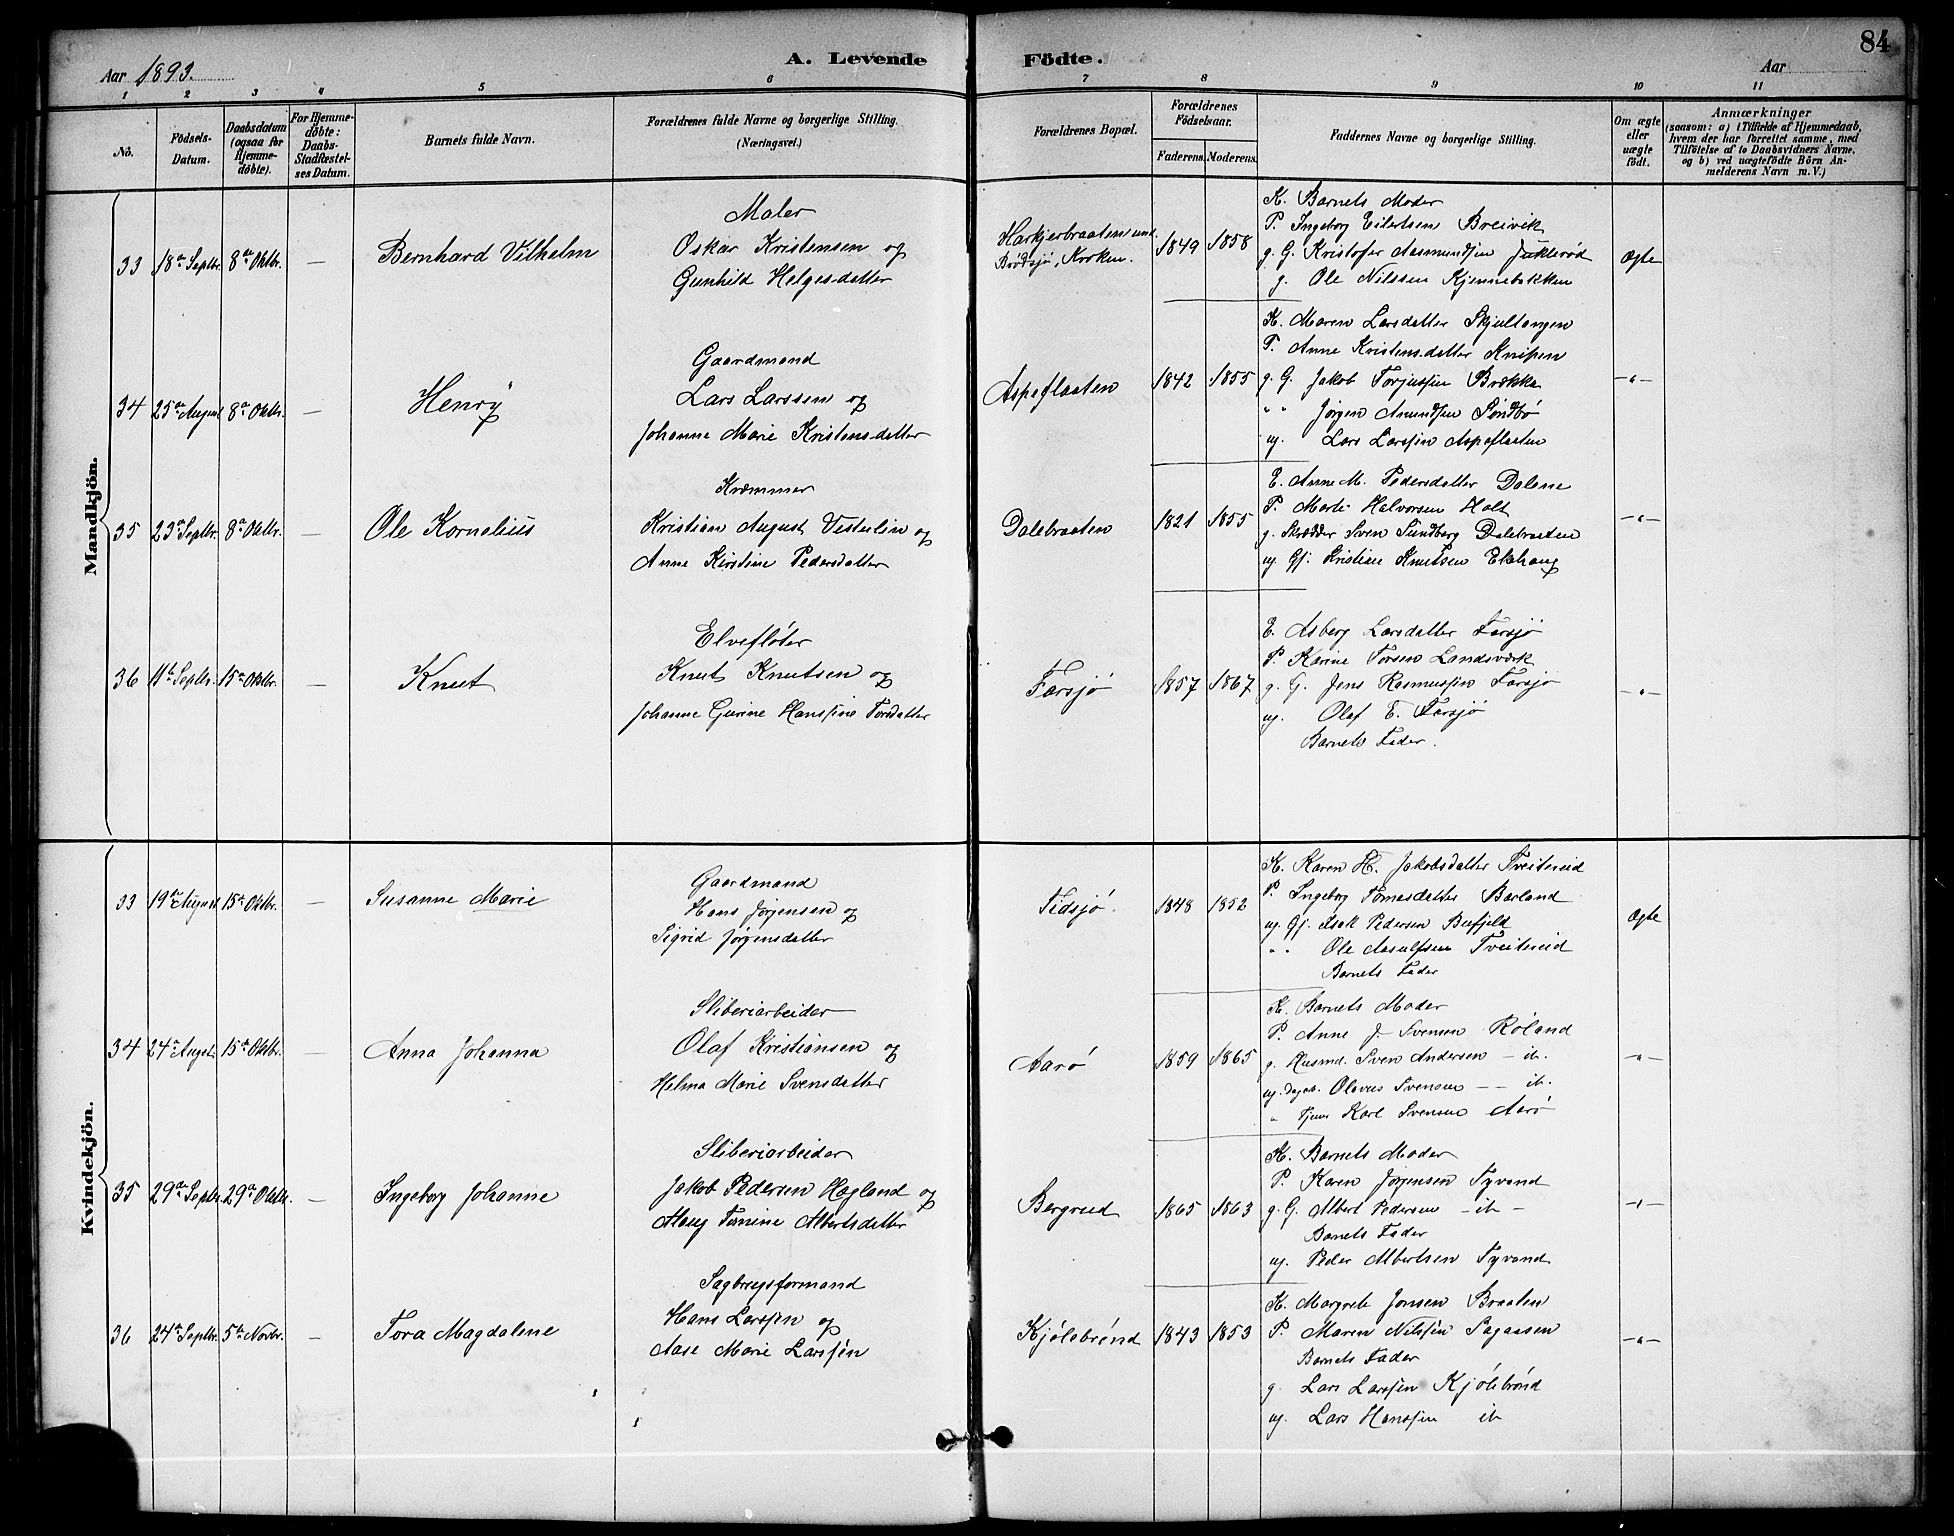 84
Aar 1893.
A. Levende Födte.
Aar
1 2 3 4 5 6 7 8 9 10 11
No.
Födsels-Datum.
Daabsdatum (ogsaa for Hjemme-döbte).
For Hjemme-döbte: Daabs-Stadfæstel-ses Datum.
Barnets fulde Navn.
Forældrenes fulde Navne og borgerlige Stilling.
(Næringsvei.)
Forældrenes Bopæl.
Forældrenes Födselsaar.
Faderens. Moderens.
Faddernes Navne og borgerlige Stilling.
Om ægte eller uægte födt.
Anmærkninger
(saasom: a) i Tilfælde af Hjemmedaab,
hvem der har forrettet samme, med
Tilföielse af to Daabsvidners Navne,
og b) ved uægtefödte Börn An-
melderens Navn m. V.)
Mandkjön.
33 18de Septbr. 8de Oktbr. — Bernhard Vilhelm
Maler
Oskar Kristensen og
Gunhild Helgesdatter
Harkjerbraaten und.
Brødsjø, Kroken.
1849 1858
K. Barnets Moder
P. Ingeborg Eilertsen Breivik
g. G. Kristofer Aasmundsen Juklerød
g. Ole Nilssen Kjennebakken
Ægte
34 25de August 8de Oktbr. — Henry
Gaardmand
Lars Larssen og
Johanne Marie Kristensdatter
Aspeflaaten
1842 1855
K. Maren Larsdatter Skjultangen
P. Anne Kristensdatter Knipen
g. G. Jakob Torjussen Brekka
" " Jørgen Amundsen Søndbø
ug. Lars Larssen Aspeflaaten
—"—
35 23de Septbr. 8de Oktbr. — Ole Kornelius
Kræmmer
Kristian August Vesterlin og
Anne Kirstine Pedersdatter
Dalebraaten
1821 1855
E. Anne M. Pedersdatter Dalene
P. Marte Halvorsen Holt
g. Skrædder Sven Sundberg Dalebraaten
ug. Gj. Kristian Knutsen Ekhaug
—"—
36 11te Septbr. 15de Oktbr. — Knut
Elvefløter
Knut Knutsen og
Johanne Gurine Hanssine Torsdatter
Farsjø
1857 1867
E. Asberg Larsdatter Farsjø
P. Karine Torsen Landsværk
g. G. Jens Rasmussen Farsjø
ug. Olaf E. Farsjø
Barnets Fader.
—"—
Kvindekjön.
33 19de August 15de Oktbr. — Susanne Marie
Gaardmand
Hans Jørgensen og
Sigrid Jørgensdatter
Tidsjø.
1848 1852
K. Karen H. Jakobsdatter Tveitereid
P. Ingeborg Tomasdatter Barland
ug. Gj. Isak Pedersen Bufjeld
" " Ole Aasulfsen Tveitereid
Barnets Fader
Ægte
34 24de Augst. 15de Oktbr. — Anna Johanna
Sliberiarbeider
Olaf Kristiansen og
Helma Marie Svensdatter
Aarø
1859 1865
K. Barnets Moder
P. Anne J. Svensen Røland
g. Husmd. Sven Andersen — ib.
ug. Dagab. Olavus Svensen — — ib.
" Tjen. Karl Svensen Aarø
—"—
35 29de Septbr. 29de Oktbr. — Ingeborg Johanne
Sliberiarbeider
Jakob Pedersen Hægland og
Aloug Tomine Albertsdatter
Bergrud
1865 1863
K. Barnets Moder
P. Karen Jørgensen Tyvand
g. G. Albert Pedersen — ib —
Barnets Fader
ug. Peder Albertsen Tyvand
—"—
36 24de Septbr. 5te Novbr. — Tora Magdalene
Sagbrugsformand
Hans Larssen og
Aase Marie Larssen
Kjølebrønd
1843 1853
K. Margrete Jonsen Braaten
P. Maren Nilssen Sagaasen
Barnets Fader
g. Lars Larssen Kjølebrønd
ug. Lars Hanssen ib
—"—